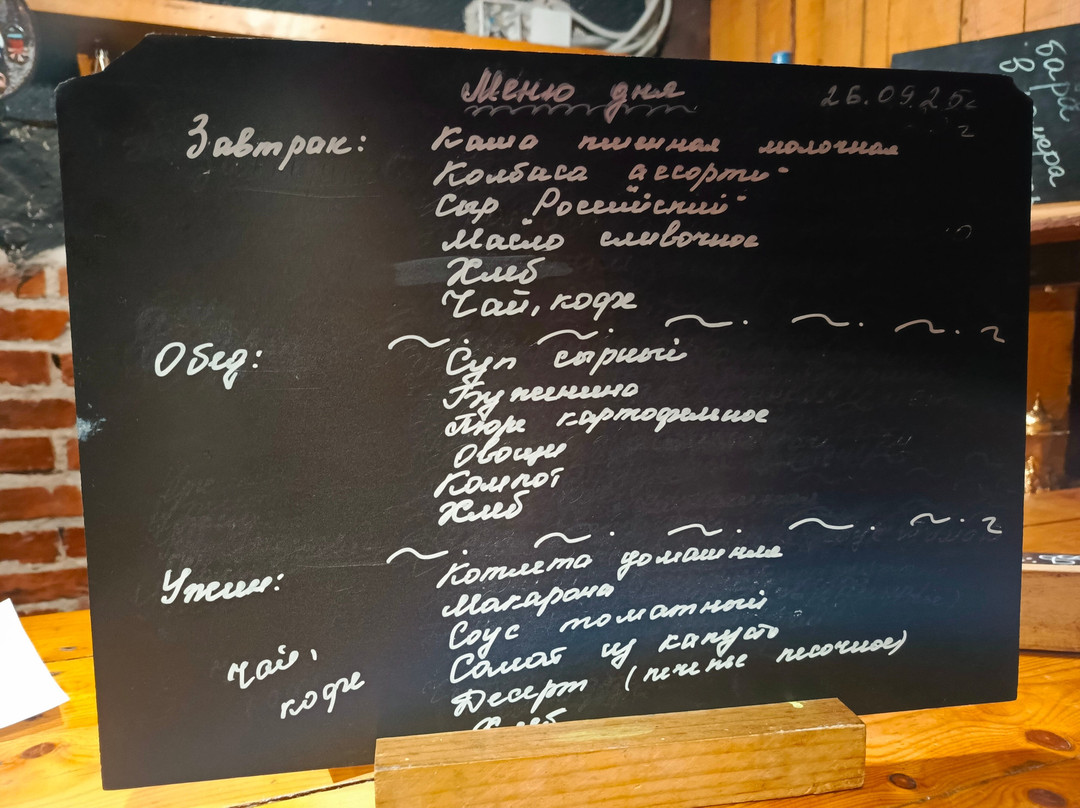 Меню дня 26.09.25г
Завтрак: Каша пшенная молочная
Колбаса ассорти
Сыр "Российский"
Масло сливочное
Хлеб
Чай, кофе
Обед: Суп сырный
Буженина
Пюре картофельное
Овощи
Компот
Хлеб
Ужин: Котлета домашняя
Макароны
Соус томатный
Салат из капусты
Десерт (печенье песочное)
Хлеб
Чай,
кофе